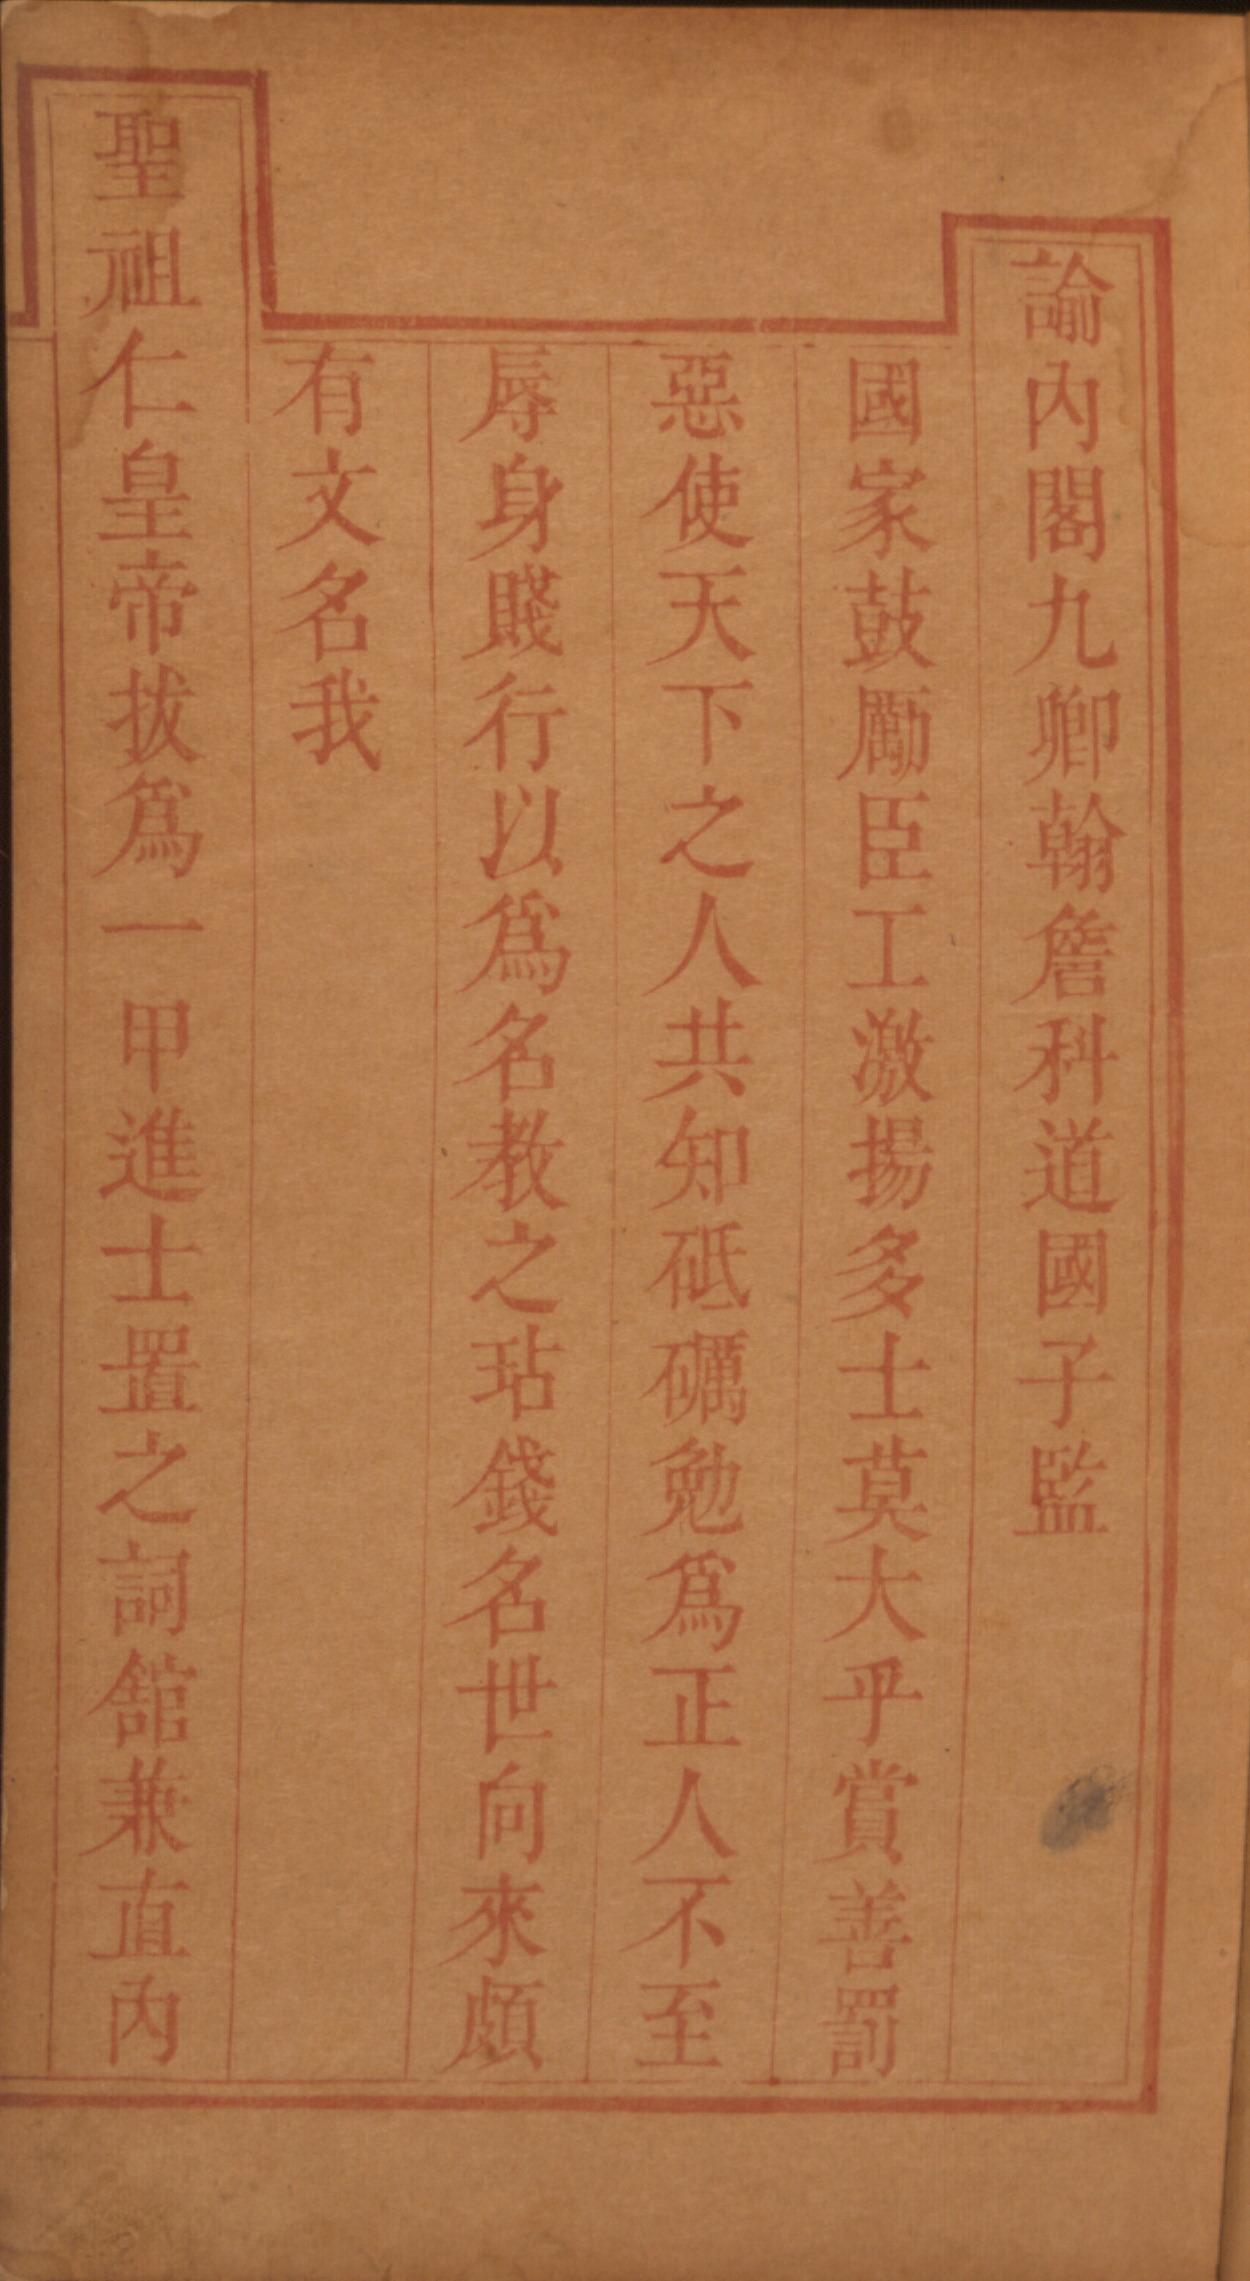 諭內閣九卿翰詹科道國子監
國家鼓勵臣工激揚多士莫大乎賞善罰
惡使天下之人共知砥礪勉爲正人不至
辱身賤行以爲名教之玷錢名世向來頗
有文名我
聖祖仁皇帝拔爲一甲進士置之詞館兼直內